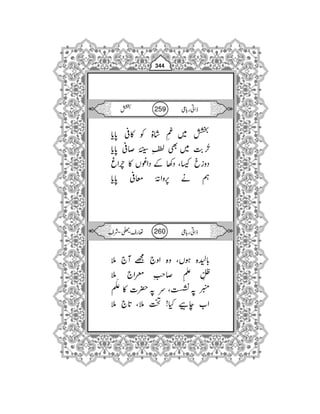 344
ذاتی، رباعی 259 بخشش
بخشش میں غمِ شاہؑ کو کافی پایا
تُربت میں بھی لطف سینۂ صافی پایا
دوزخ کیسا، دکھا کے داغوں کا چراغ
ہم نے پروانۂ معافی پایا
ذاتی، رباعی 260
بالیدہ ہوں، وہ اوج مجھے آج ملا
ظلِّ علم صاحبِ معراج ملا
منبر پہ نشست، سر پہ حضرت کا علم
اب چاہیے کیا؟ تخت ملا، تاج ملا